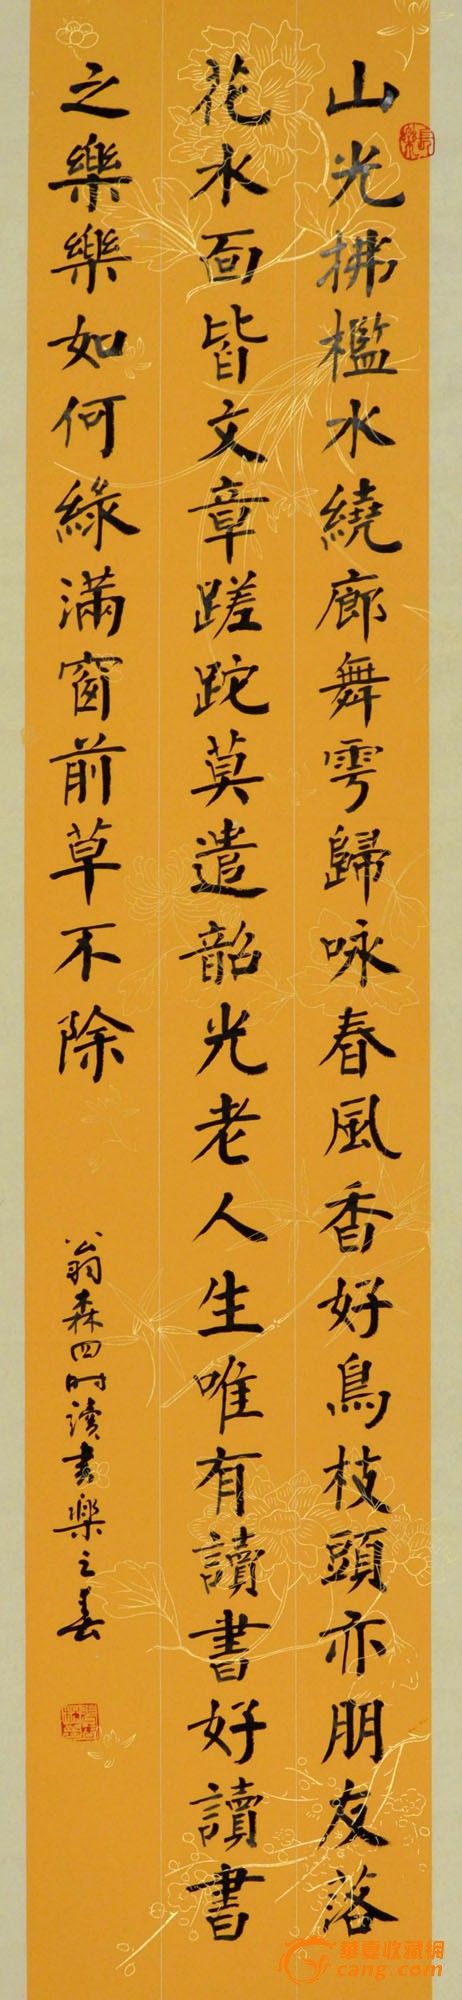 山光拂檻水繞廊舞雩歸咏春風香好鳥枝頭亦朋友落
花水面皆文章蹉跎莫遣韶光老人生唯有讀書好讀書
之樂樂如何綠滿窗前草不除
翁森四时讀書樂之春
長樂
華夏收藏網
cang.com